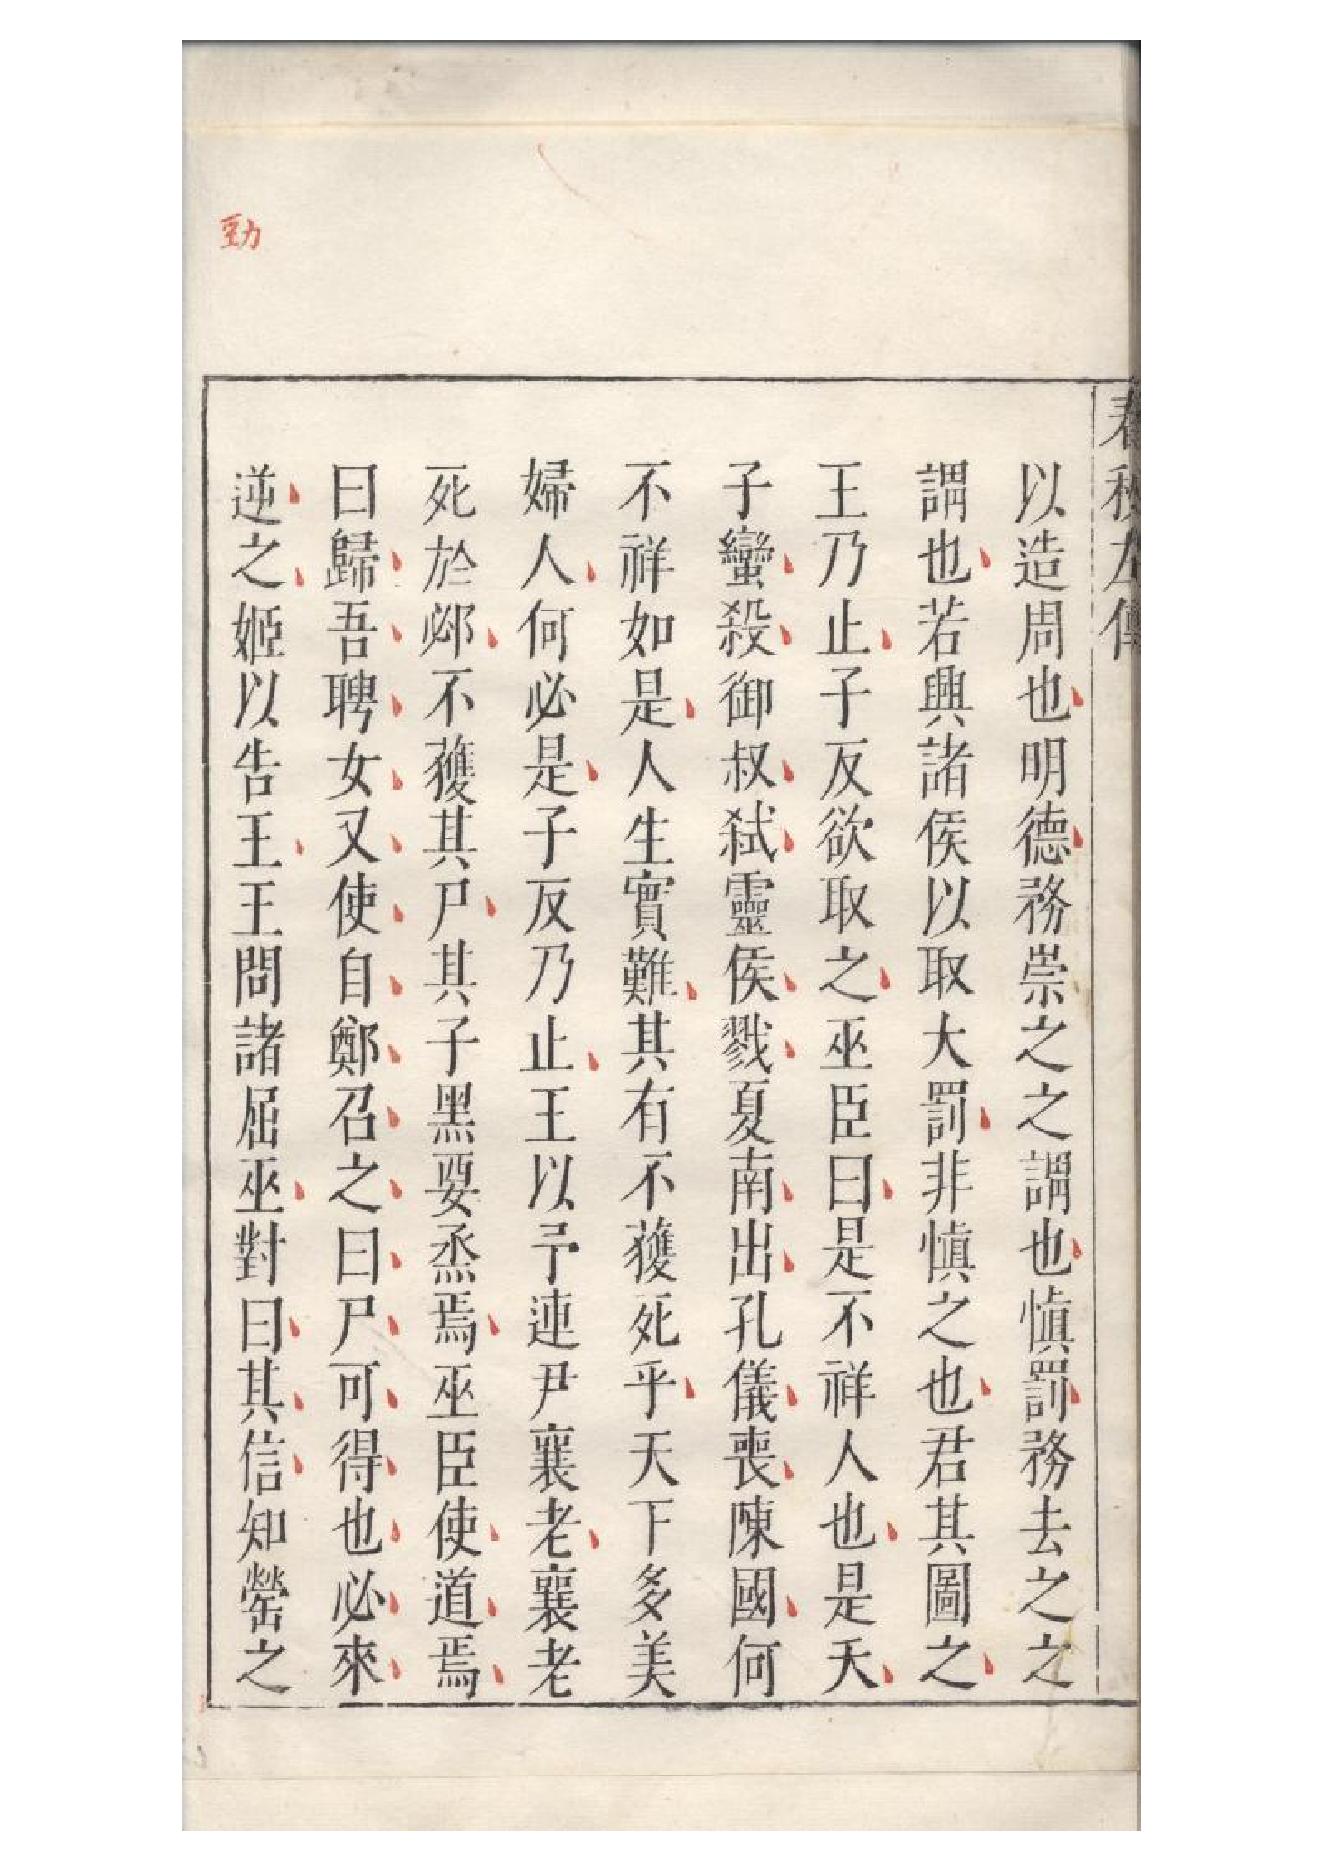 春秋左傳
以造周也明德務崇之之謂也愼罰務去之之
謂也若興諸侯以取大罰非愼之也君其圖之
王乃止子反欲取之巫臣曰是不祥人也是夭
子蠻殺御叔弒靈侯戮夏南出孔儀喪陳國何
不祥如是人生實難其有不獲死乎天下多美
婦人何必是子反乃止王以予連尹襄老襄老
死於邲不獲其尸其子黑要烝焉巫臣使道焉
曰歸吾聘女又使自鄭召之曰尸可得也必來
逆之姬以告王王問諸屈巫對曰其信知罃之
勁